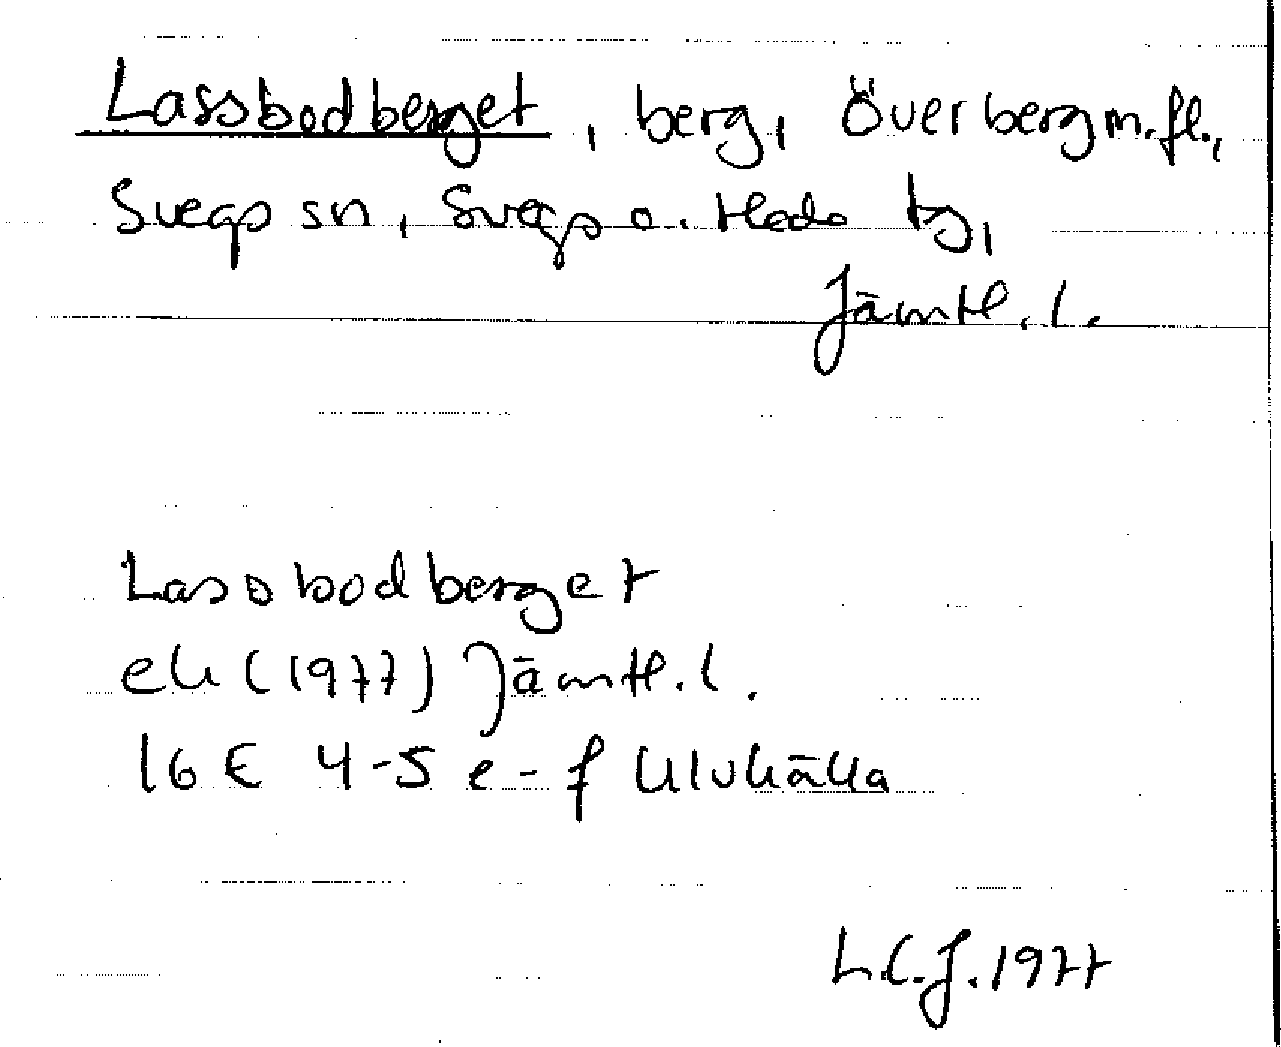 Lassbodberget, berg, Överberg m.fl.,
Svegs sn, Svegs o. Hede tg,
Jämtl. l.
Lassbodberget
ek (1977) Jämtl. l.
16 E 4-5 e-f Ulvkälla
L.C.J. 1977